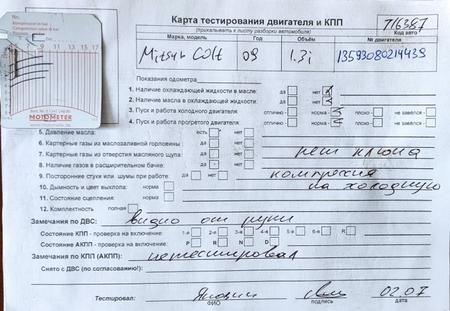 Карта тестирования двигателя и КПП
(прикалывать к листу разборки автомобиля)
Т/6387
Код авто
Марка, модель
Год
Объём
№ двигателя
Mitsub Colt 09 1.3i 13593080214439
Показания одометра
1. Наличие охлаждающей жидкости в масле: да нет
2. Наличие масла в охлаждающей жидкости: да нет
3. Пуск и работа холодного двигателя: отлично - плохо - не завелся -
4. Пуск и работа прогретого двигателя: отлично - плохо - не завелся -
5. Давление масла: есть нет
6. Картерные газы из маслозаливной горловины: да нет
7. Картерные газы из отверстия масляного щупа: да нет
8. Наличие газов в расширительном бачке: да нет
9. Посторонние стуки или шумы при работе: да нет
10. Дымность и цвет выхлопа: норма
11. Состояние сцепления: норма
12. Комплектность полная
компрессия
на холодную
Замечания по ДВС: видно от руки
Состояние КПП - проверка на включение: 1-я 2-я 3-я 4-я 5-я 6-я R
Состояние АКПП - проверка на включение: P R N D
Замечания по КПП (АКПП): нетестировал
Снято с ДВС (по согласованию!):
Тестировал: 02.07
ФИО подпись дата
MOTOMETER